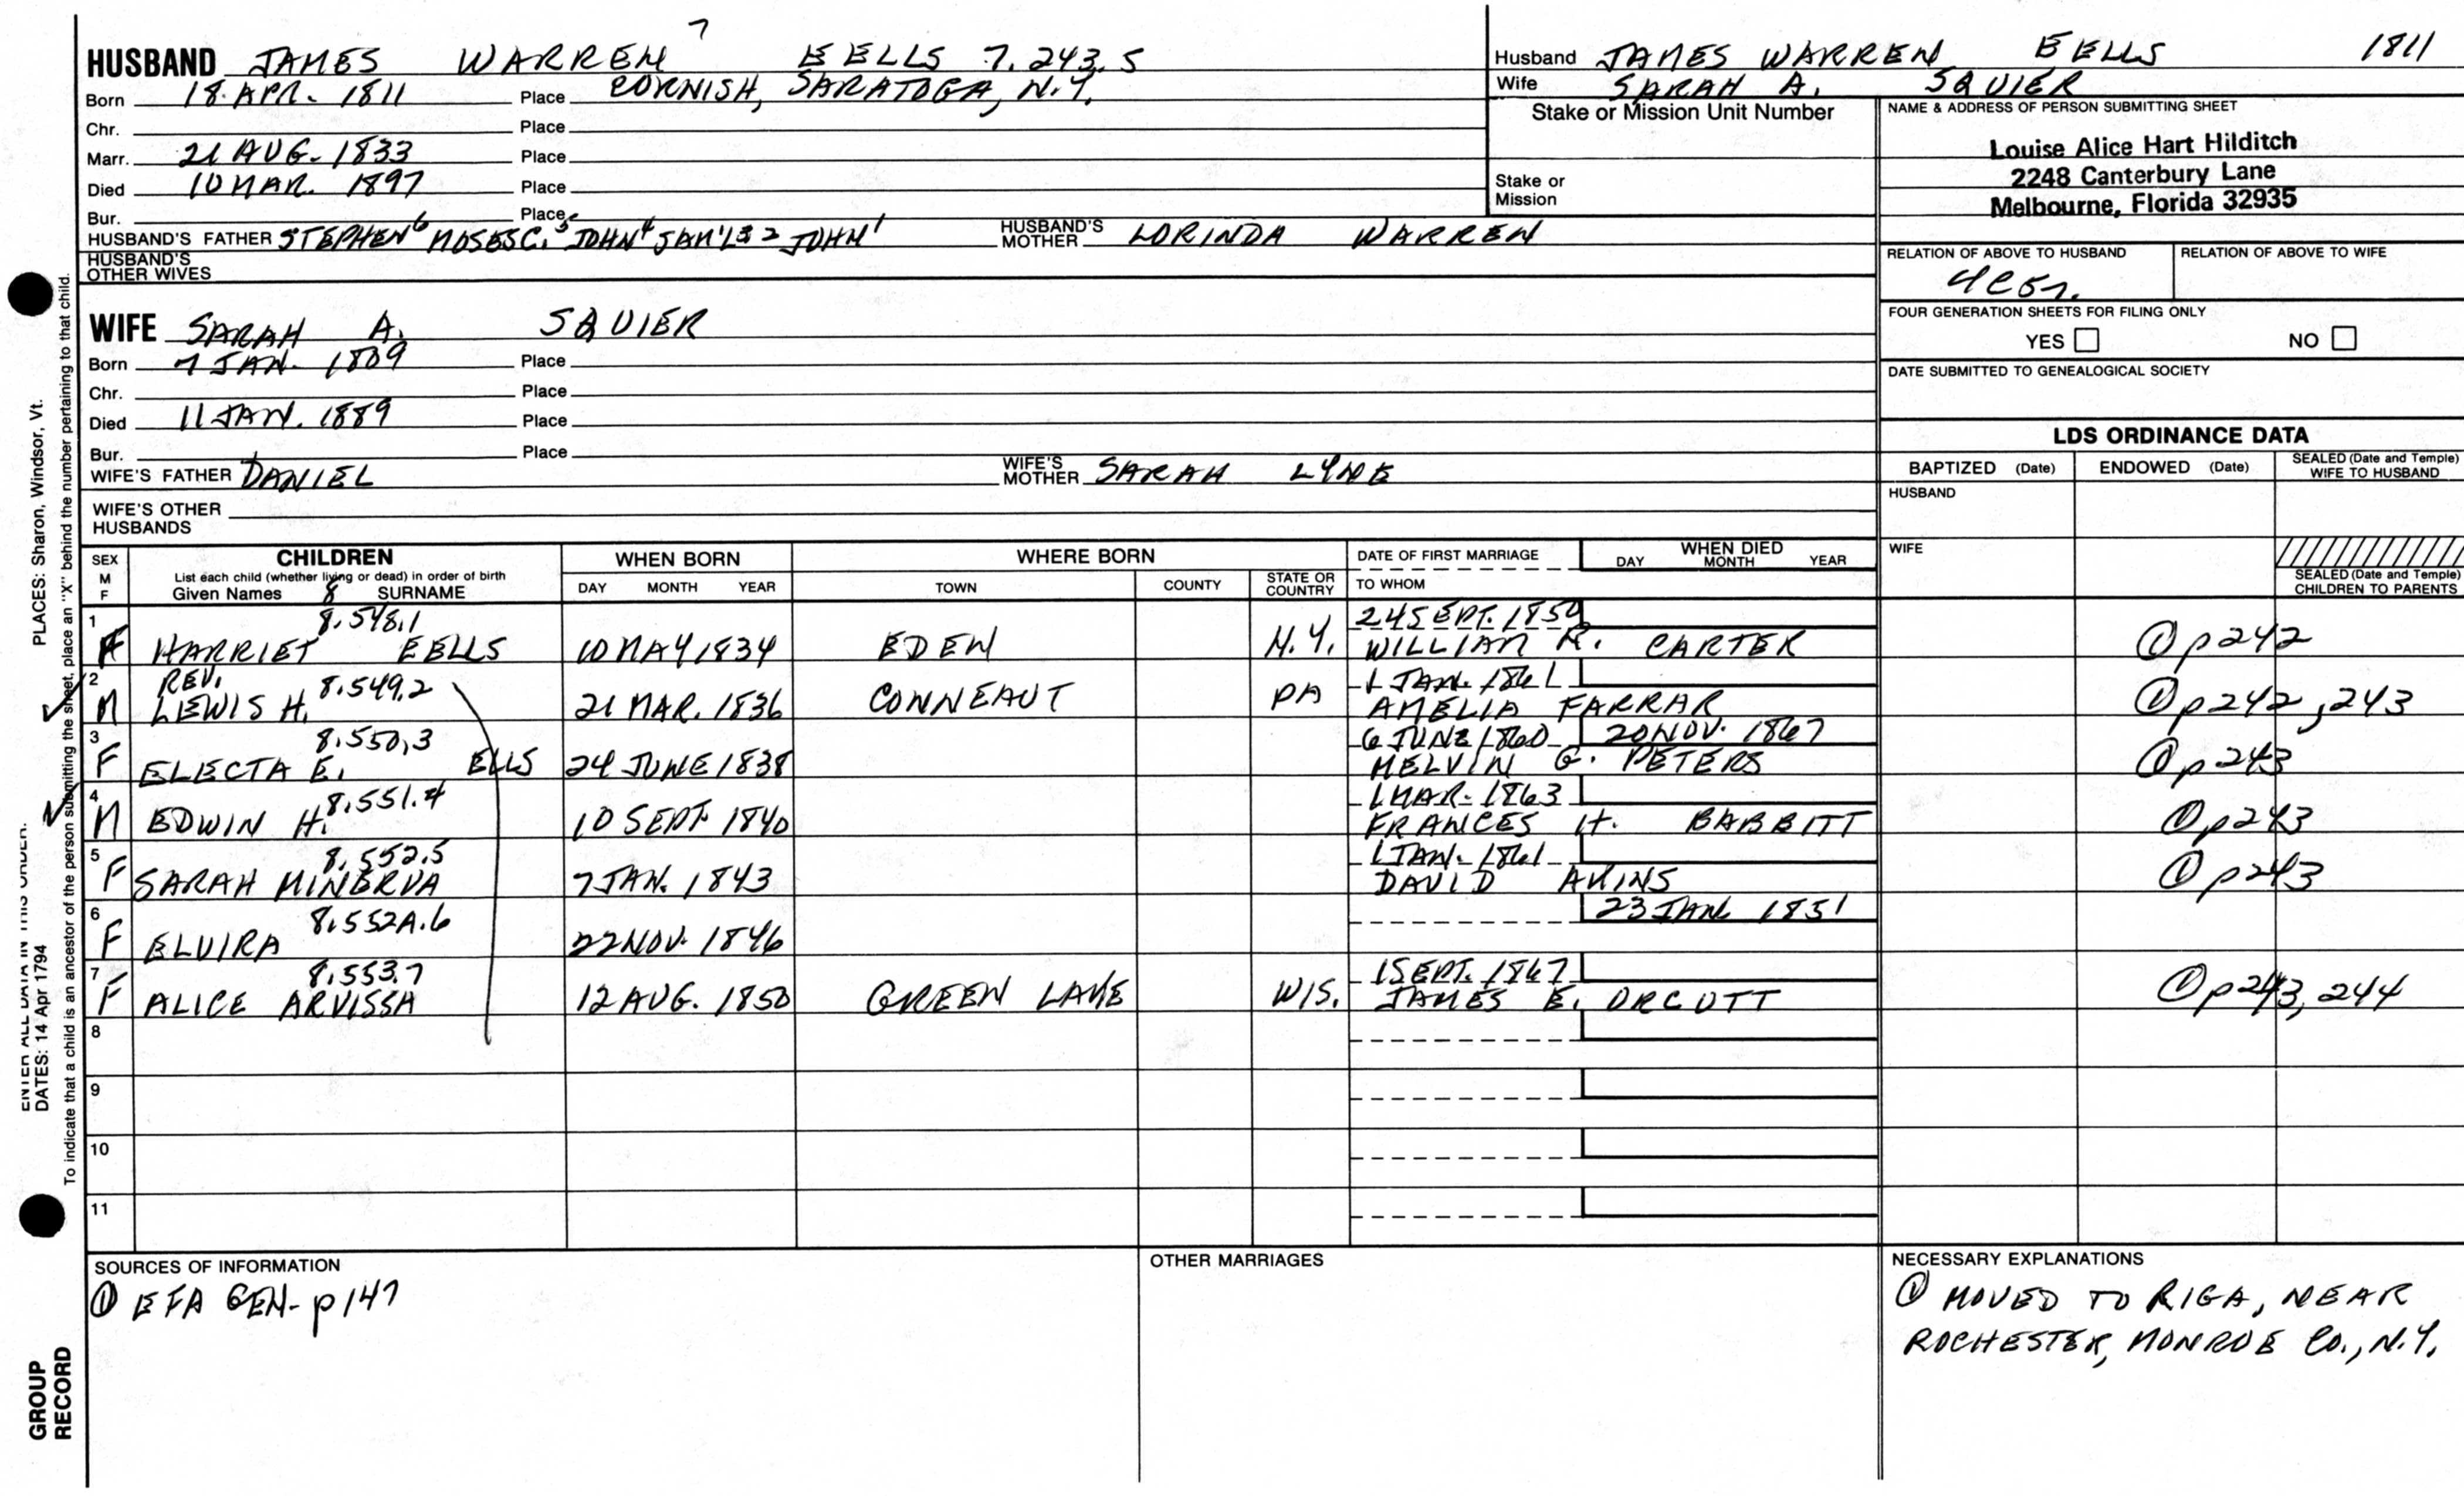 HUSBAND JAMES WARREN 7 EELLS 7.243.5
Born 18 APR. 1811 Place CORNISH, SARATOGA, N.Y.
Chr. Place
Marr. 21 AUG. 1833 Place
Died 10 MAR. 1897 Place
Bur. Place
HUSBAND'S FATHER STEPHEN6 MOSES C.5 JOHN4 SAM'L 3 2 JOHN1 HUSBAND'S MOTHER LORINDA WARREN
HUSBAND'S OTHER WIVES
WIFE SARAH A. SQUIER
Born 7 JAN. 1809 Place
Chr. Place
Died 11 JAN. 1889 Place
Bur. Place
WIFE'S FATHER DANIEL WIFE'S MOTHER SARAH LYNE
WIFE'S OTHER HUSBANDS
Husband JAMES WARREN EELLS 1811
Wife SARAH A. SQUIER
Stake or Mission Unit Number
Stake or Mission
NAME & ADDRESS OF PERSON SUBMITTING SHEET
Louise Alice Hart Hilditch
2248 Canterbury Lane
Melbourne, Florida 32935
RELATION OF ABOVE TO HUSBAND RELATION OF ABOVE TO WIFE
FOUR GENERATION SHEETS FOR FILING ONLY
YES NO
DATE SUBMITTED TO GENEALOGICAL SOCIETY
LDS ORDINANCE DATA
BAPTIZED (Date) ENDOWED (Date) SEALED (Date and Temple) WIFE TO HUSBAND
HUSBAND
WIFE
SEALED (Date and Temple) CHILDREN TO PARENTS
SEX M F
CHILDREN
List each child (whether living or dead) in order of birth
Given Names 8 SURNAME
WHEN BORN DAY MONTH YEAR
WHERE BORN TOWN COUNTY STATE OR COUNTRY
DATE OF FIRST MARRIAGE
TO WHOM
WHEN DIED DAY MONTH YEAR
1 8.548.1 24 SEPT. 1854
F HARRIET EELLS 10 MAY 1834 EDEN N.Y. WILLIAM R. CARTER ① p242
2 REV. 8.549.2 1 JAN. 1861
M LEWIS H. 21 MAR. 1836 CONNEAUT PA AMELIA FARRAR ① p242, 243
3 8.550.3 6 JUNE 1860 20 NOV. 1867
F ELECTA E. ELLS 24 JUNE 1838 MELVIN G. PETERS ① p243
4 8.551.4 1 MAR. 1863
M EDWIN H. 10 SEPT 1840 FRANCES H. BABBITT ① p243
5 8.552.5 1 JAN. 1861
F SARAH MINERVA 7 JAN. 1843 DAVID AKINS ① p243
6 8.552A.6 23 JAN 1851
F ELVIRA 22 NOV. 1846
7 8.553.7 1 SEPT. 1867
F ALICE ARVISSA 12 AUG. 1850 GREEN LAKE WIS. JAMES E. ORCUTT ① p243, 244
8
9
10
11
SOURCES OF INFORMATION
① EFA GEN- p147
OTHER MARRIAGES
NECESSARY EXPLANATIONS
① MOVED TO RIGA, NEAR
ROCHESTER, MONROE CO., N.Y.
PLACES: Sharon, Windsor, Vt.
ENTER ALL DATA IN THIS ORDER:
DATES: 14 Apr 1794
To indicate that a child is an ancestor of the person submitting the sheet, place an "X" behind the number pertaining to that child.
GROUP
RECORD